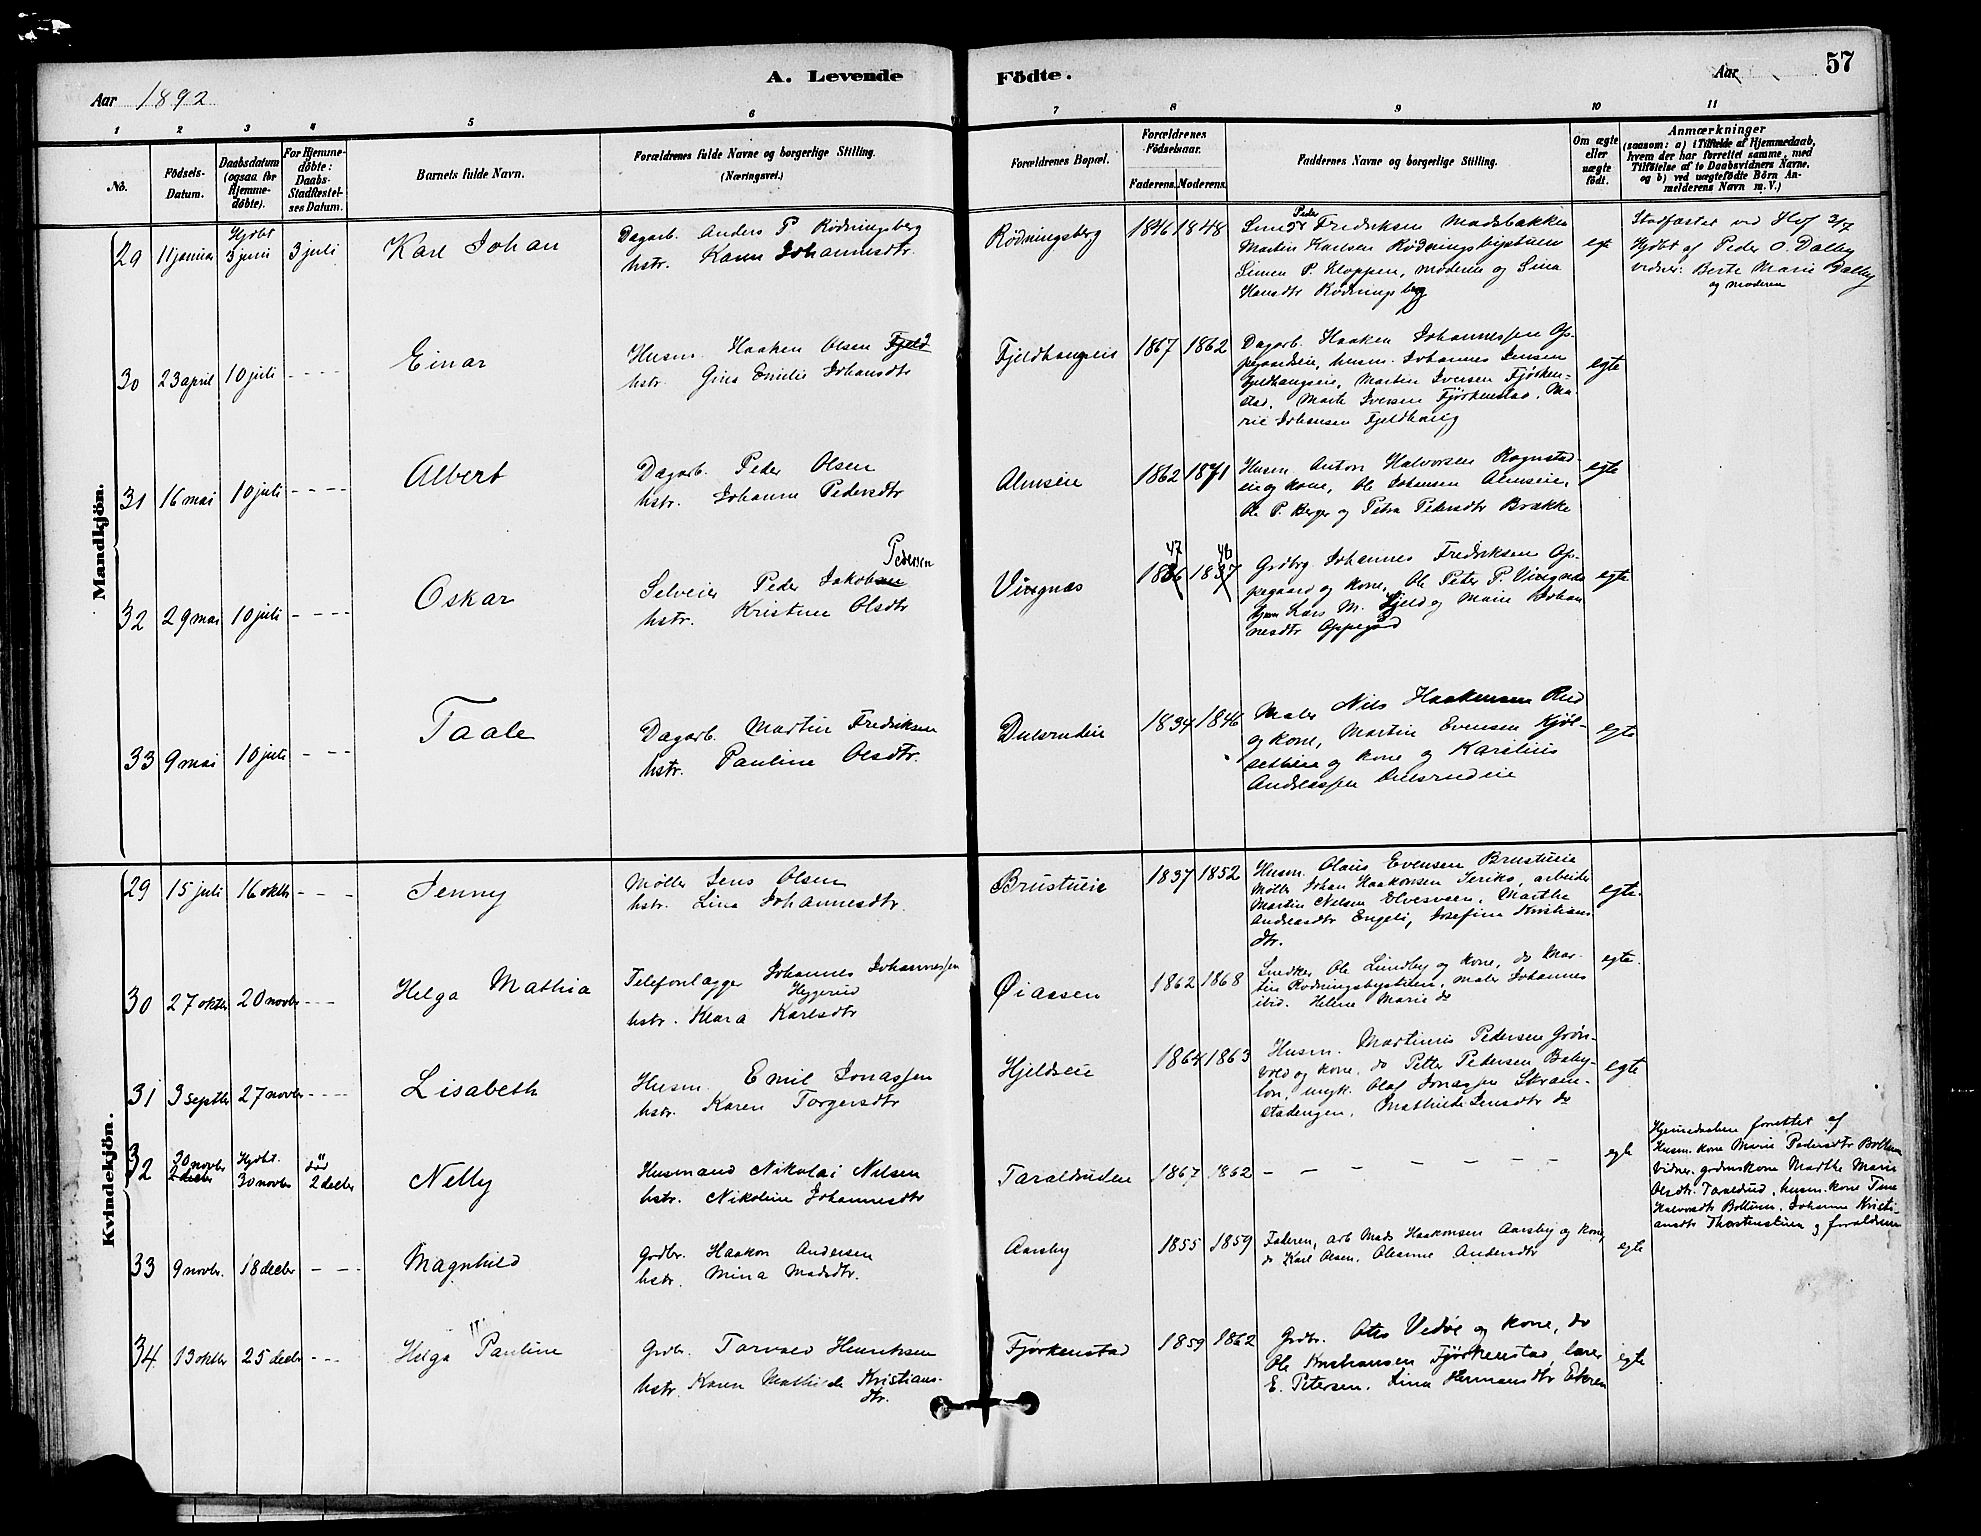 Aar 1892
A. Levende
Födte.
Aar
57
1 2 3 4 5 6 7 8 9 10 11
No.
Födsels-
Datum.
Daabsdatum
(ogsaa for
Hjemme-
döbte).
For Hjemme-
döbte:
Daabs-
Stadfæstel-
ses Datum.
Barnets fulde Navn.
Forældrenes fulde Navne og borgerlige Stilling.
(Næringsvei.)
Forældrenes Bopæl.
Forældrenes
Födselsaar.
Faderens. Moderens.
Faddernes Navne og borgerlige Stilling.
Om ægte
eller
uægte
födt.
Anmærkninger
(saasom: a) i Tilfælde af Hjemmedaab,
hvem der har forrettet samme, med
Tilföielse af to Daabsvidners Navne,
og b) ved uægtefödte Börn An-
melderens Navn m. V.)
Mandkjön.
29 11 januar Hjdbt 3 juni 3 juli Karl Johan
Dagarb. Anders P Rødningsberg
hstr. Karen Johannesdtr.
Rødningsberg 1846 1848
Peder Fredriksen Madsbakken
Martin Karlsen Rødningsbystuen
Simen P. Kloppen, moderen og Lina
Hansdtr Rødningsberg
Stadfæstet ved Hof 3/7
Hjdbt af Peder O. Dalby
vidner: Berte Marie Dalby
og moderen
30 23 april 10 juli - - - - Einar
Husm. Haaken Olsen Fjeld
hstr. Gina Emilie Johansdtr
Fjeldhaugeie 1867 1862
Dagarb. Haaken Johannessen Op-
pegaardeie, husm. Johannes Jensen
Fjeldhaugseie, Martin Iversen Fjørken-
stad, Marte Iversen Fjørkenstad, Ma-
rie Johansen Fjeldhaug
egte
31 16 mai 10 juli - - - - Albert
Dagarb. Peder Olsen
hstr. Johanne Pedersdtr
Almseie 1862 1871
Husm. Anton Halvorsen Rognstad-
eie og kone, Ole Johansen Almseie,
Ole P. Berger og Petra Pedersdtr Brække
egte
32 29 mai 10 juli - - - - Oskar
Pedersen
Selveier Peder Jakobsen
hstr. Kristine Olsdtr
Vivgnæs 47 46
Grdbrg. Johannes Fredriksen Op-
pegaard og kone, Ole Peter P. Vivgnæs
Lars M. Fjeld og Marie Johan
nesdtr Oppegård
egte
33 9 mai 10 juli - - - Taale
Dagarb. Martin Fredriksen
hstr. Pauline Olsdtr.
Dulsrudeie 1834 1846
Maler Nils Haakensen Rud
og kone, Martin Evensen Kjøl-
setheie og kone og Karelius
Andreassen Dulsrudeie
egte
Kvindekjön.
29 15 juli 16 oktbr - - - Jenny
Møller Jens Olsen
hstr. Lina Johannesdtr.
Brustueie 1837 1852
Husm. Olaus Evensen Brustueie
Møller Johan Haakonsen Jeriko, arbeider
Martin Nelsen Elvesveen, Marthe
Andreasdtr Engeli, Josefine Kristians
dtr.
egte
30 27 oktbr 20 novbr - - - Helga Mathia
Telefonlægger Johannes Johannessen
Heggerud
hstr. Klara Karlsdtr
Øiaasen 1862 1868
Snedker Ole Lundby og kone, do Mar-
tin Rødningsbystuen, maler Johannes
ibid. Helene Marie do
egte
31 3 septbr 27 novbr - - - - Lisabeth
Husm. Emil Jonassen
hstr. Karen Torgersdtr
Hjeldseie 1864 1863
Husm. Martinius Pedersen Grøn-
vold og kone, do Petter Pedersen Baby-
lon, ungk. Olaf Jonassen Skram-
stadengen, Mathilde Jensdtr do
egte
32 30 novbr 2 decbr Hjdbt. 30 novbr død 2 decbr Nelly
Husmand Nikolai Nilsen
hstr. Nikoline Johannesdtr
Taraldruden 1867 1862 - - - - - - -
egte
Hjemmedaaben forrettet af
Husm. kone Marie Pedersdtr Boltun
Vidner: grdmskone Marthe Marie
Olsdtr. Taraldrud, husm. kone Tine
Halvorsdtr Boltun, Johanne Kristi-
ansdtr Thorstenstuen og forældrene
33 9 novbr. 18 decbr - - - Magnhild
Grdbr. Haakon Andersen
hstr. Mina Madsdtr.
Aarsby 1855 1859
Faderen, arb Mads Haakonsen Aarsby og kone,
do Karl Olsen, Oleanne Andersdtr
egte
34 13 oktbr 25 decbr - - - Helga Pauline
Grdbr. Torvald Henriksen
hstr. Karen Mathilde Kristians-
dtr.
Fjørkenstad 1859 1862
Grdbr. Otto Vedøe og kone, do
Ole Kristiansen Fjørkenstad, lærer
E. Petersen, Lina Hermansdtr Ekeren
egte